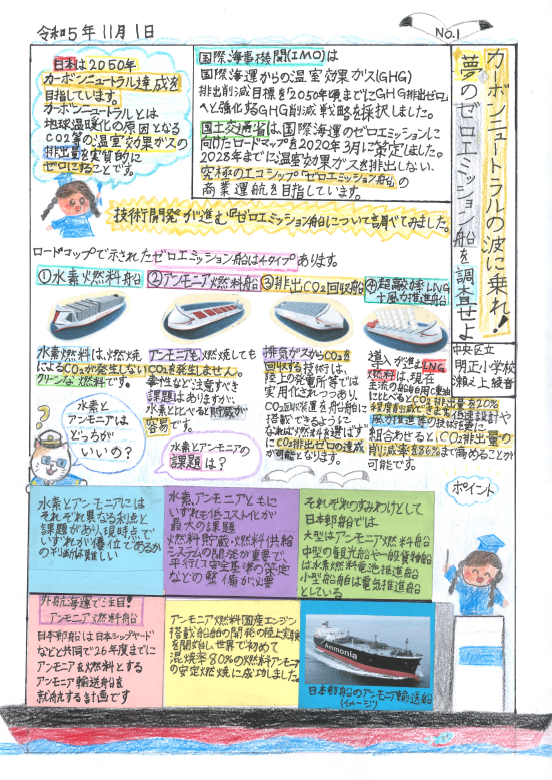 令和5年11月1日
No.1
カーボンニュートラルの波に乗れ!
夢のゼロエミッション船を調査せよ
中央区立
明正小学校
瀬之上綾音
日本は2050年
カーボンニュートラル達成を
目指しています。
カーボンニュートラルとは
地球温暖化の原因となる
CO2等の温室効果ガスの
排出量を実質的に
ゼロにすることです。
国際海事機関(IMO)は
国際海運からの温室効果ガス(GHG)
排出削減目標を2050年頃までにGHG排出ゼロ
へと強化するGHG削減戦略を採択しました。
国土交通省は、国際海運のゼロエミッションに
向けたロードマップを2020年3月に策定しました。
2028年までに温室効果ガスを排出しない、
究極のエコシップ「ゼロエミッション船」の
商業運航を目指しています。
技術開発が進む『ゼロエミッション船』について調べてみました。
ロードマップで示されたゼロエミッション船は4タイプあります。
①水素燃料船
水素燃料は、燃焼
によるCO2が発生しない
クリーンな燃料です。
②アンモニア燃料船
アンモニアも、燃焼しても
CO2を発生しません。
毒性など注意すべき
課題はありますが、
水素と比べると貯蔵が
容易です。
③排出CO2回収船
排気ガスからCO2を
回収する技術は、
陸上の発電所等では
実用化されつつあり、
CO2回収装置を船舶に
搭載できるように
なれば燃料を選ばず
にCO2排出ゼロの達成
が可能となります。
④超高効率LNG
+風力推進船
導入が進むLNG
燃料は、現在
主流の船舶用C重油
に比べるとCO2排出量を20%
程度削減できます。低速設計や
風力推進等の技術様に
組合わせると、CO2排出量の
削減率を86%まで高めることが
可能です。
水素と
アンモニアは
どっちが
いいの?
水素とアンモニアの
課題は?
ポイント
水素とアンモニアには
それぞれ異なる利点と
課題があり、現時点で
いずれが優位であるか
の判断は難しい
水素、アンモニアともに
いずれも低コスト化が
最大の課題
燃料貯蔵・燃料供給
システムの開発が重要で、
平行して安全基準の策定
などの整備が必要
それぞれのすみわけとして
日本郵船では
大型はアンモニア燃料船
中型の観光船や一般貨物船
は水素燃料電池推進船
小型船舶は電気推進船
としている
外航海運でご注目!
アンモニア燃料船
日本郵船は日本シップヤード
などと共同で26年度までに
アンモニアを燃料とする
アンモニア輸送船を
就航する計画です
アンモニア燃料国産エンジン
搭載船舶の開発の陸上実験
を開始し世界で初めて
混焼率80%の燃料アンモニア
の安定燃焼に成功しました。
Ammonia
日本郵船のアンモニア輸送船
(イメージ)